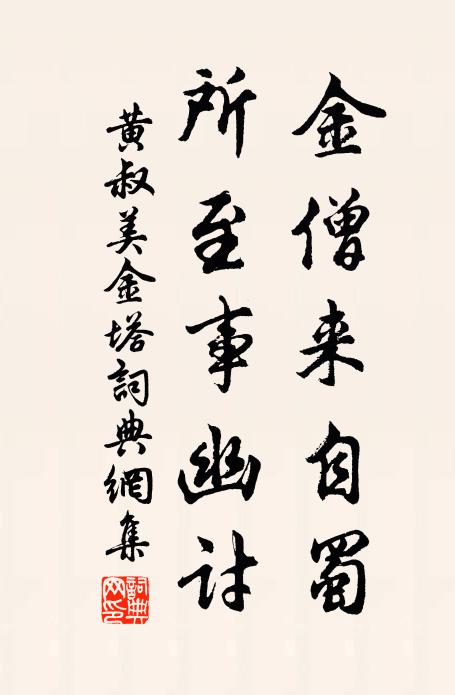 金僧来自蜀
所至事幽討
黄叔美金塔詞典網集
詞典網印